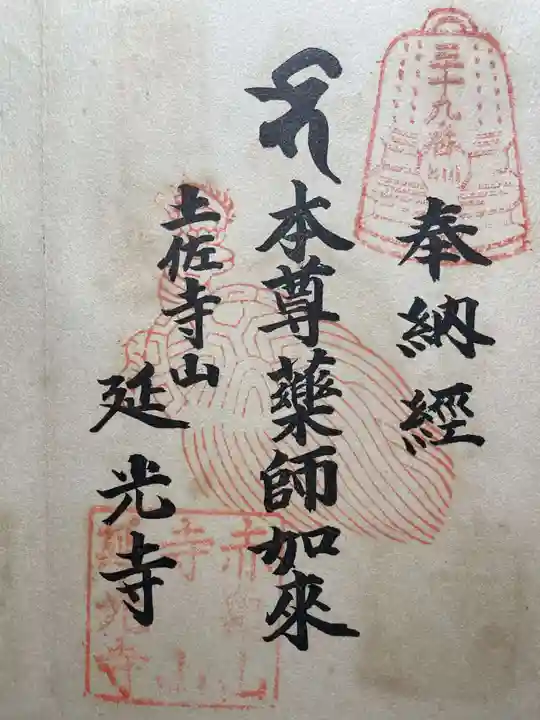 三十九番
奉納經
本尊藥師如來
土佐寺山
延光寺